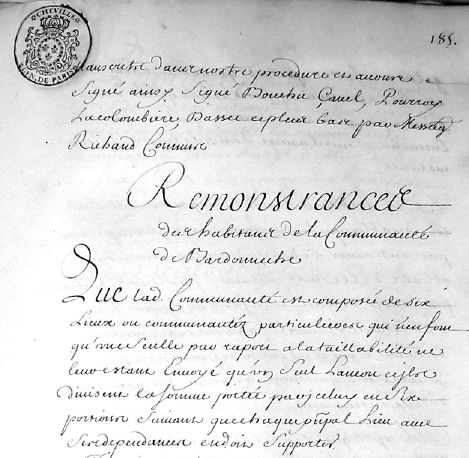 185.
dans notre procedure et avons
signé ainsy Signé Bouchu, Canel, Pourroy
Lacolombiere, Basset et plus bas par Messeig
Richard Commire
Remonstrances
des habitans de la Communauté
de Bardonneche
Que lad. Communauté est composée de six
Lieux ou communautéz particulieres qui n'en font
qu'une seulle par raport a la taillabilité ne
leur estant Envoyé qu'un Seul Lançon et ils
divisent la somme portée par icelluy en six
portions suivant que chaque ppal Lieu avec
ses dependances en doit supporter